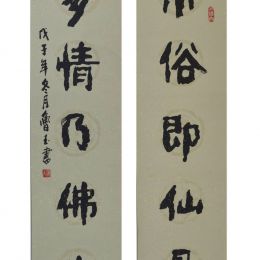 俗即仙
多情乃佛
戊子年冬月魯玉書